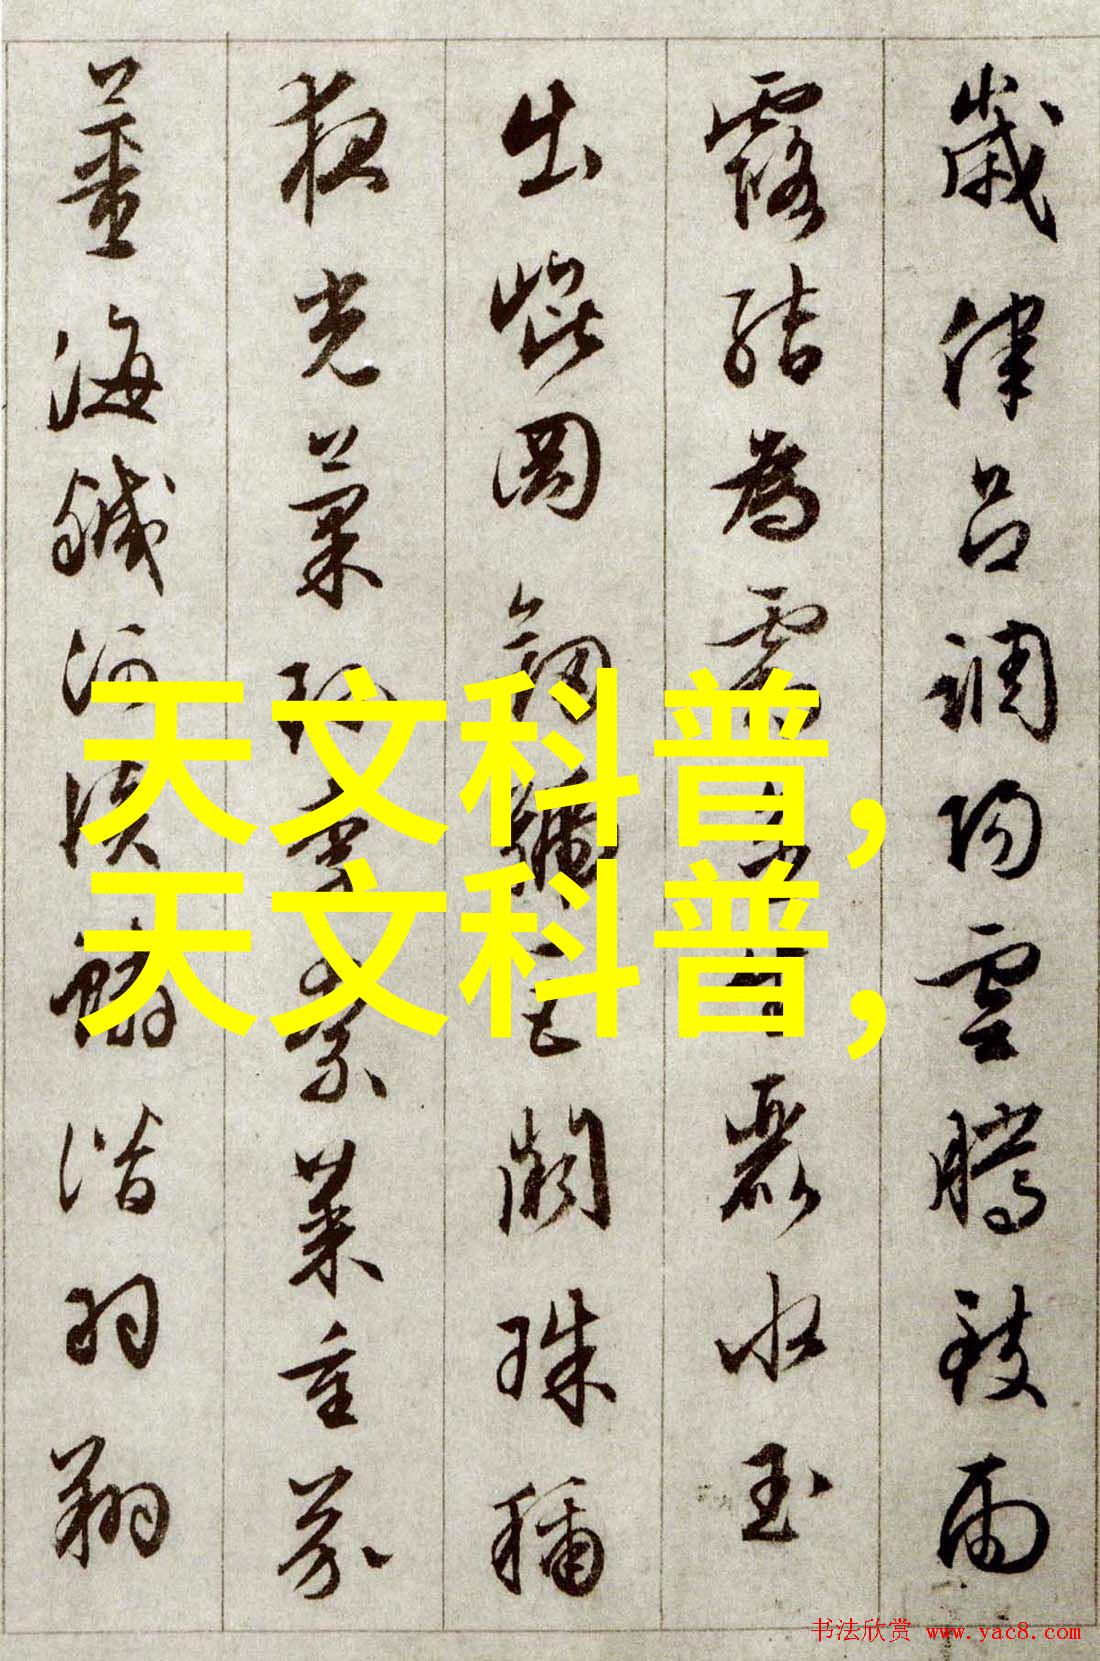 歲律呂調陽雲騰致雨
露結為霜麗水玉
出崐岡劍號巨闕珠稱
夜光菓珍李柰菜重芥
薑海鹹河淡鱗潛羽翔
天文科普,
天文科普,
书法欣赏 www.yac8.com